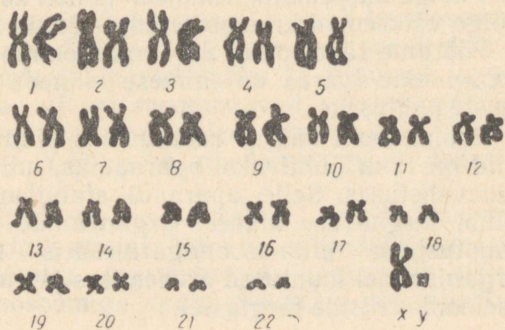 1 2 3 4 5
6 7 8 9 10 11 12
13 14 15 16 17 18
19 20 21 22 x y